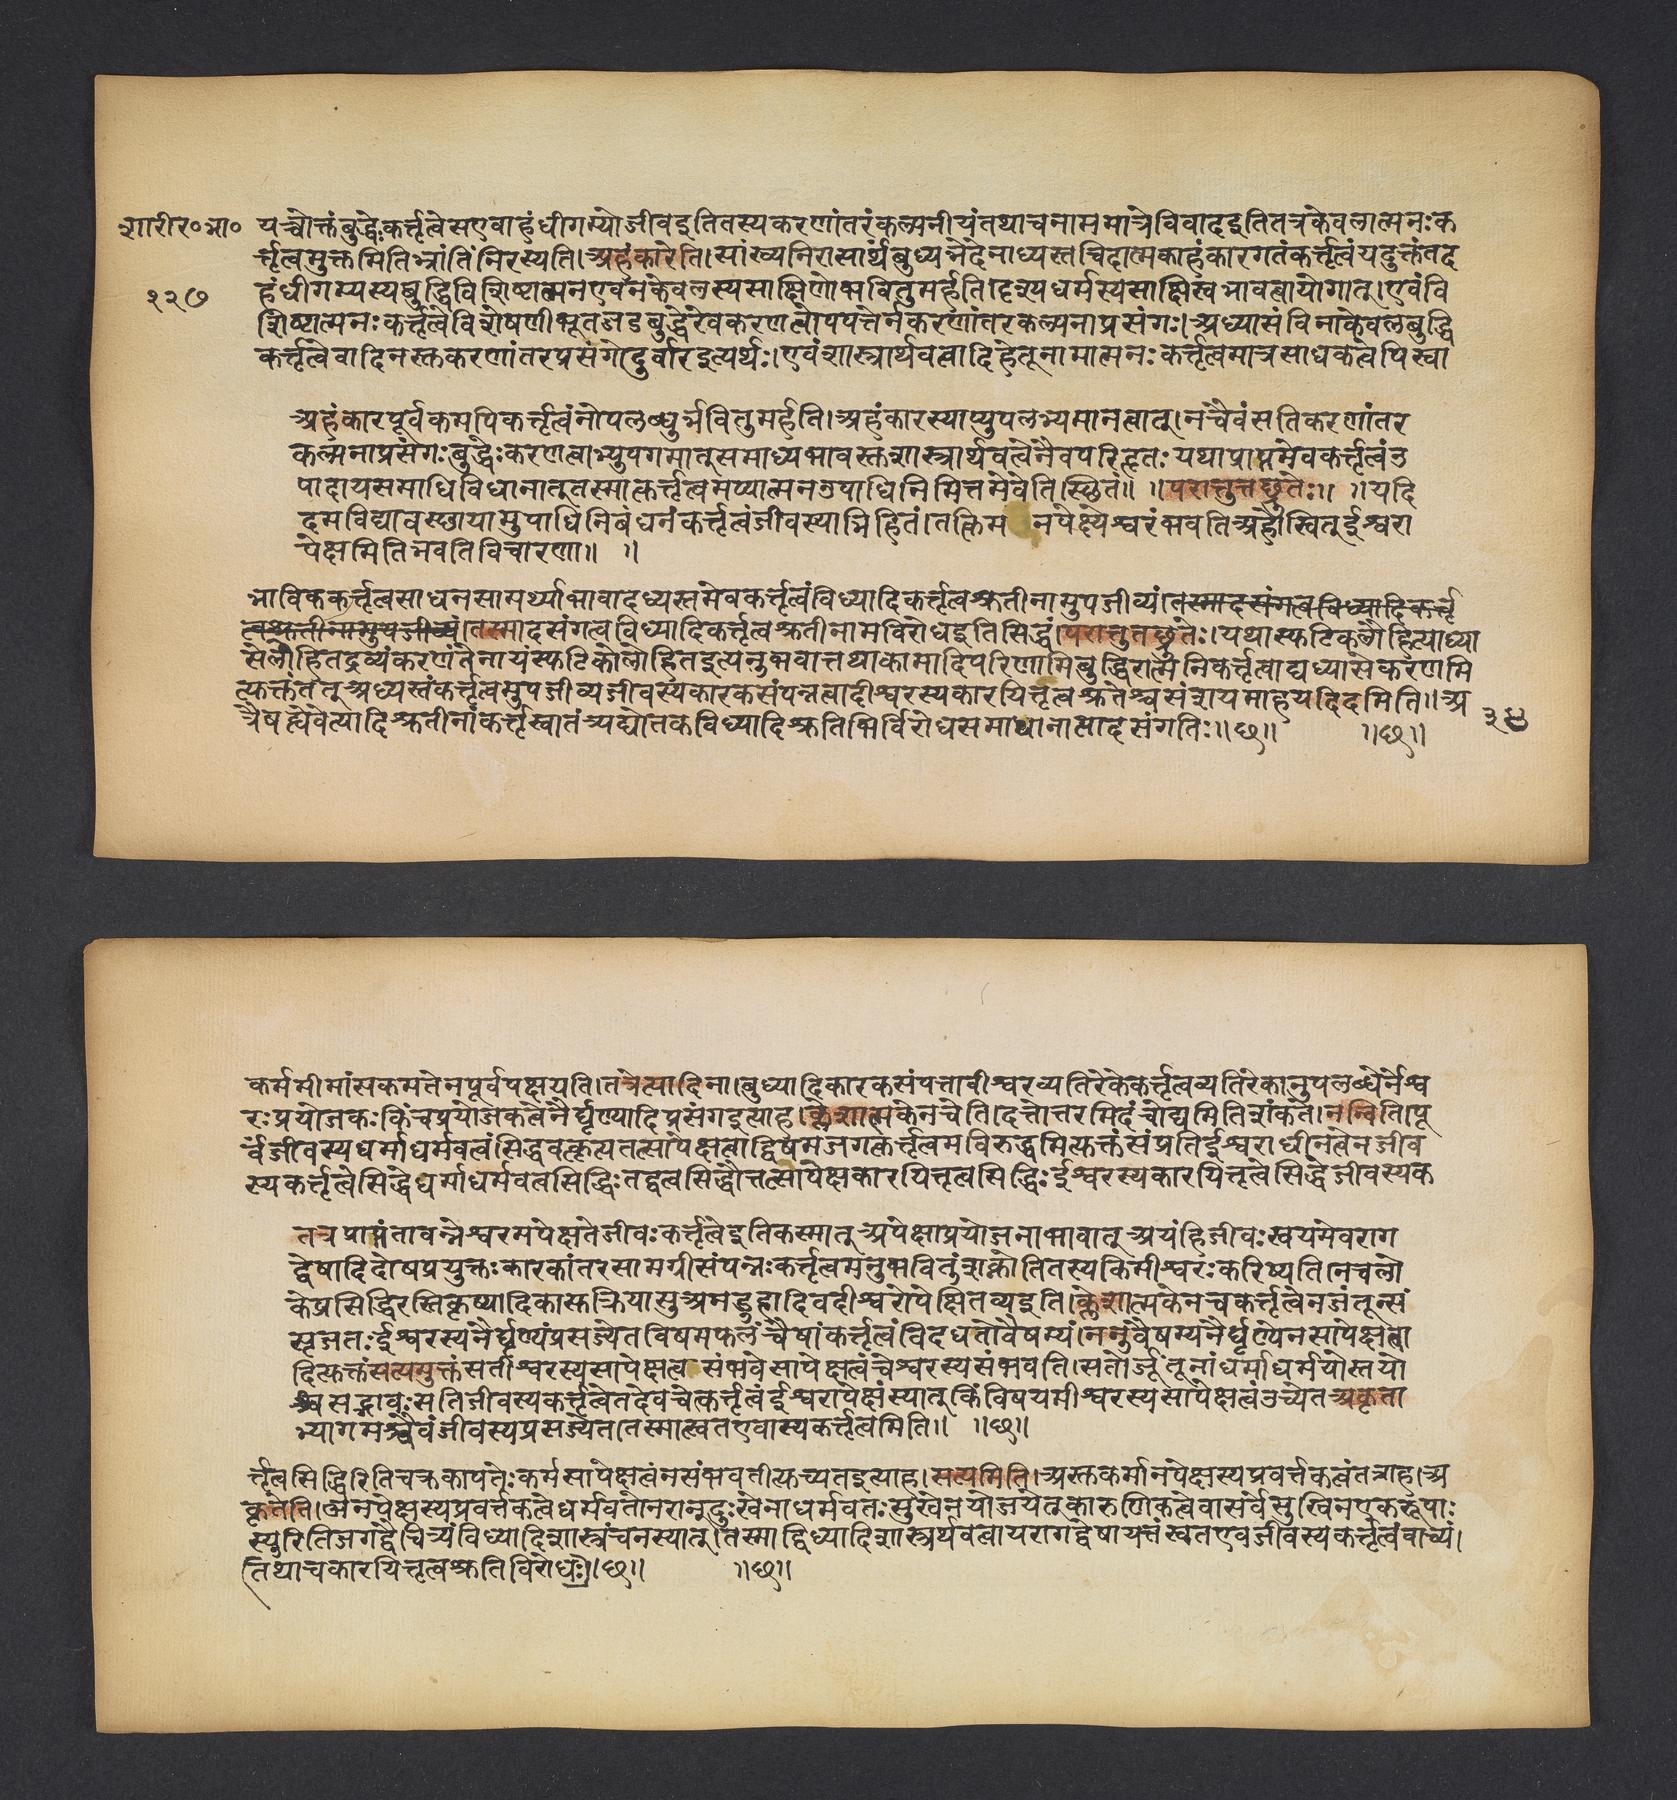 शारीर॰भा॰ यच्चोक्तंबुद्धेःकर्त्तृत्वेसएवाहंधीगम्योजीवइतितस्यकरणांतरंकल्पनीयंतथाचनाममात्रेविवादइतितत्रकेवलात्मनःक
र्त्तृत्वमुक्तमितिभ्रांतिंनिरस्यति।अहंकारेति।सांख्यनिरासार्थंबुध्यभेदेनाध्यस्तचिदात्मकाहंकारगतंकर्त्तृत्वंयदुक्तंतद
२२७ हंधीगम्यस्यबुद्धिविशिष्टात्मनएवनकेवलस्यसाक्षिणोभवितुमर्हति।दृश्यधर्मस्यसाक्षिस्वभावत्वायोगात्।एवंवि
शिष्टात्मनःकर्त्तृत्वेविशेषणीभूतजडबुद्धेरेवकरणत्वोपपत्तेर्नकरणांतरकल्पनाप्रसंगः।अध्यासंविनाकेवलबुद्धि
कर्त्तृत्वेवादिनस्तकरणांतरप्रसंगोदुर्वारइत्यर्थः।एवंशास्त्रार्थवत्वादिहेतूनामात्मनःकर्त्तृत्वमात्रसाधकत्वेपिस्वा
अहंकारपूर्वकमपिकर्त्तृत्वंनोपलब्धुर्भवितुमर्हति।अहंकारस्याप्युपलभ्यमानत्वात्।नचैवंसतिकरणांतर
कल्पनाप्रसंगःबुद्धेःकरणत्वाभ्युपगमात्समाध्यभावस्तशास्त्रार्थवत्वेनैवपरिहृतःयथाप्राप्तमेवकर्त्तृत्वंउ
पादायसमाधिविधानात्तस्मात्कर्त्तृत्वमप्यात्मनउपाधिनिमित्तमेवेतिस्थितं॥ ॥परात्तुतच्छ्रुतेः॥ ॥यदि
दमविद्यावस्थायामुपाधिनिबंधनंकर्त्तृत्वंजीवस्याभिहितं।तत्किम नपेक्ष्येश्वरंभवतिअहोस्वित्ईश्वरा
पेक्षमितिभवतिविचारणा॥ ॥
भाविककर्त्तृत्वसाधनसामर्थ्याभावादध्यस्तमेवकर्त्तृत्वंविध्यादिकर्त्तृत्वश्रुतीनामुपजीव्यं।तस्मादसंगत्वविध्यादिकर्त्तृ
त्वश्रुतीनामुपजीव्यं।तस्मादसंगत्वविध्यादिकर्त्तृत्वश्रुतीनामविरोधइतिसिद्धं।परात्तुतच्छ्रुतेः।यथास्फटिकलौहित्याध्या
सेलोहितद्रव्यंकरणंतेनायंस्फटिकोलोहितइत्यनुभवात्तथाकामादिपरिणामिबुद्धिरात्मनिकर्त्तृत्वाद्यध्यासेकरणमि
त्युक्तंतत्तुअध्यस्तंकर्त्तृत्वमुपजीव्यजीवस्यकारकसंपन्नत्वादीश्वरस्यकारयितृत्वश्रुतेश्चसंशयमाहयदिदमिति॥अ
त्रैषह्येवेत्यादिश्रुतीनांकर्त्तृस्वातंत्र्यद्योतकविध्यादिश्रुतिभिर्विरोधसमाधानात्पादसंगतिः॥छ॥ ॥छ॥
कर्ममीमांसकमतेनपूर्वपक्षयति।तत्रेत्यादिना।बुध्यादिकारकसंपत्तावीश्वरव्यतिरेकेकर्त्तृत्वव्यतिरेकानुपलब्धेर्नेश्व
रःप्रयोजकःकिंचप्रयोजकत्वेनैर्घृण्यादिप्रसंगइत्याह।क्लेशात्मकेनचेति।दत्तोत्तरमिदंचोद्यमितिशंकते।नन्विति।पू
र्वंजीवस्यधर्माधर्मवत्वंसिद्धवत्कृत्यतत्सापेक्षत्वाद्विषमजगत्कर्त्तृत्वमविरुद्धमित्युक्तंसंप्रतिईश्वराधीनत्वेनजीव
स्यकर्त्तृत्वेसिद्धेधर्माधर्मवत्वसिद्धिःतद्वत्वसिद्धौतत्सापेक्षकारयितृत्वसिद्धिःईश्वरस्यकारयितृत्वेसिद्धेजीवस्यक
तत्रप्राप्तंतावन्नेश्वरमपेक्षतेजीवःकर्त्तृत्वेइतिकस्मात्अपेक्षाप्रयोजनाभावात्अयंहिजीवःस्वयमेवराग
द्वेषादिदोषप्रयुक्तःकारकांतरसामग्रीसंपन्नःकर्त्तृत्वमनुभवितुंशक्नोतितस्यकिमीश्वरंःकरिष्यति।नचलो
केप्रसिद्धिरस्तिकृष्यादिकास्तक्रियासुअनडुहादिवदीश्वरोपेक्षितव्यइति।क्लेशात्यकेनचकर्त्तृत्वेनजंतून्सं
सृजतःईश्वरस्यनैर्घृण्यंप्रसज्येतविषमफलंचैषांकर्त्तृत्वंविदधतोवैषम्यं।ननुवैषम्यनैर्घृण्येनसापेक्षत्वा
दित्युक्तंसत्यमुक्तंसतीश्वरस्यसापेक्षत्व संभवेसापेक्षत्वंचेश्वरस्यसंभवति।सतोर्जंतूनांधर्माधर्मयोस्तयो
श्चसद्भावःसतिजीवस्यकर्त्तृत्वेतदेवचेत्कर्त्तृत्वंईश्वरापेक्षंस्यात्किंविषयमीश्वरस्यसापेक्षत्वंउच्येतअकृता
भ्यागमश्चैवंजीवस्यप्रसज्येत।तस्मात्स्वतएवास्यकर्त्तृत्वमिति॥ ॥छ॥
र्त्तृत्वसिद्धिरितिचक्रकापत्तेःकर्मसापेक्षत्वंनसंभवतीत्युच्यतइत्याह।सत्यमिति।अस्तकर्मानपेक्षस्यप्रवर्त्तकत्वंतत्राह।अ
कृतेति।अनपेक्षस्यप्रवर्त्तकत्वेधर्मवतोनरान्दुःखेनाधर्मवतःसुखेनयोजयेत्कारुणिकत्वेवासर्वेसुखिनएकरूपाः
स्युरितिजगद्वैचित्र्यंविध्यादिशास्त्रंचनस्यात्।तस्माद्विध्यादिशास्त्रार्थवत्वायरागद्वेषायत्तंस्वतएवजीवस्यकर्त्तृत्वंवाच्यं।
तथाचकारयितृत्वश्रुतिविरोधः॥छ॥ ॥छ॥